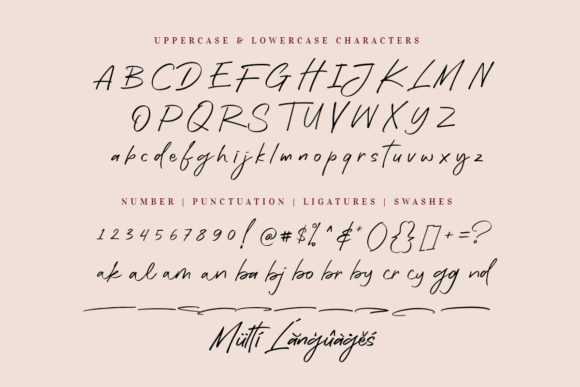 UPPERCASE & LOWERCASE CHARACTERS
A B C D E F G H I J K L M N
O P Q R S T U V W X Y Z
a b c d e f g h i j k l m n o p q r s t u v w x y z
NUMBER | PUNCTUATION | LIGATURES | SWASHES
1 2 3 4 5 6 7 8 9 0 ! @ # $ % ^ & * ( ) { } [ ] + = ?
ak al am an ba bj bo br by cr cy gg nd
Mütti Lánģûàģěś